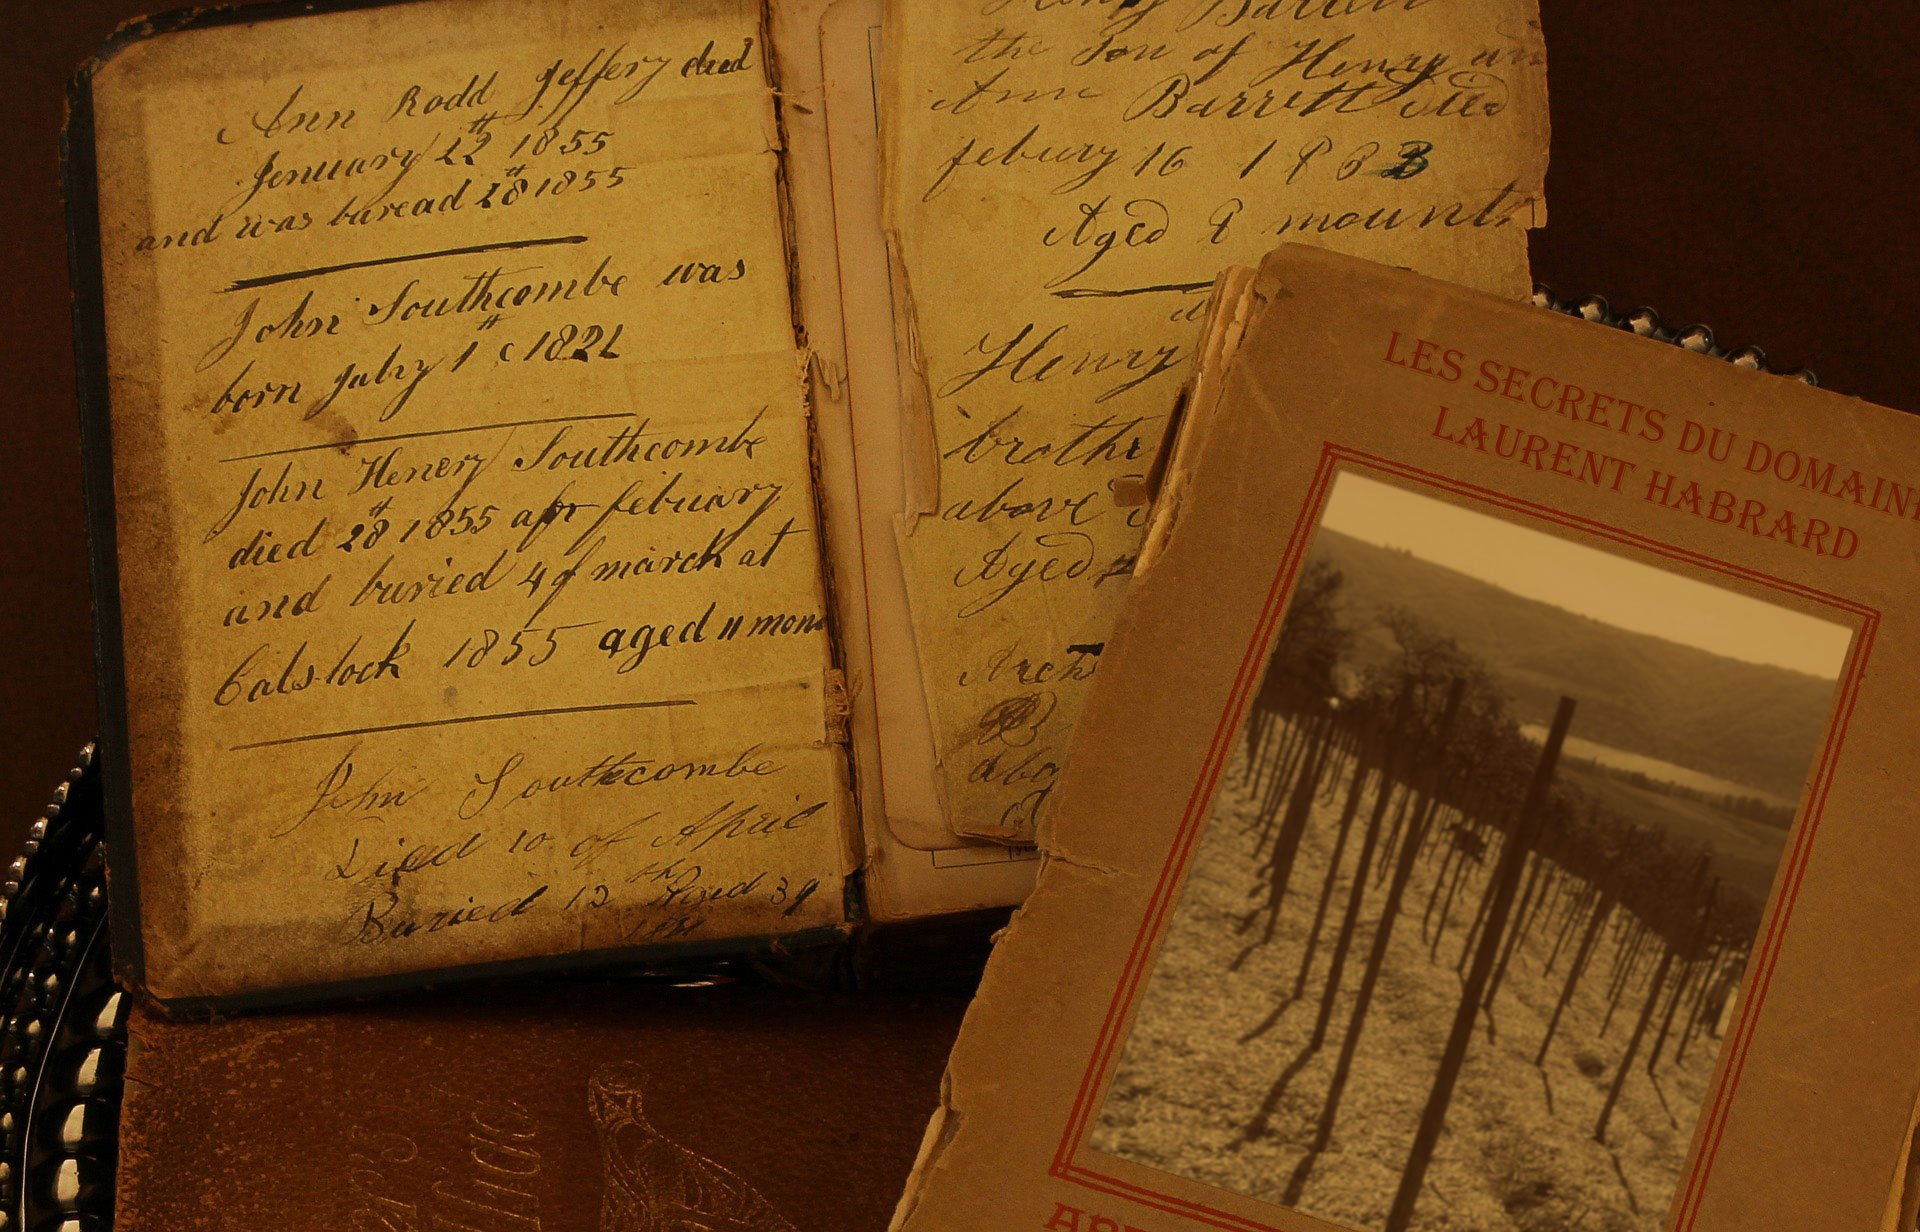 Ann Rodd Jeffery died
Jenuary 22 1855
and was buread 28 1855
John Southcombe was
born July 1 1821
John Henery Southcombe
died 28 1855 apr febuary
and buried 4 of march at
Calstock 1855 aged 11 mon
John Southcombe
Died 10 of April
Buried 13th Aged 39
Henry Barrett
the Son of Henry an
Ann Barrett died
febury 16
Aged 8 mounts
Henry
brothe
above
Aged
LES SECRETS DU DOMAINE
LAURENT HABRARD